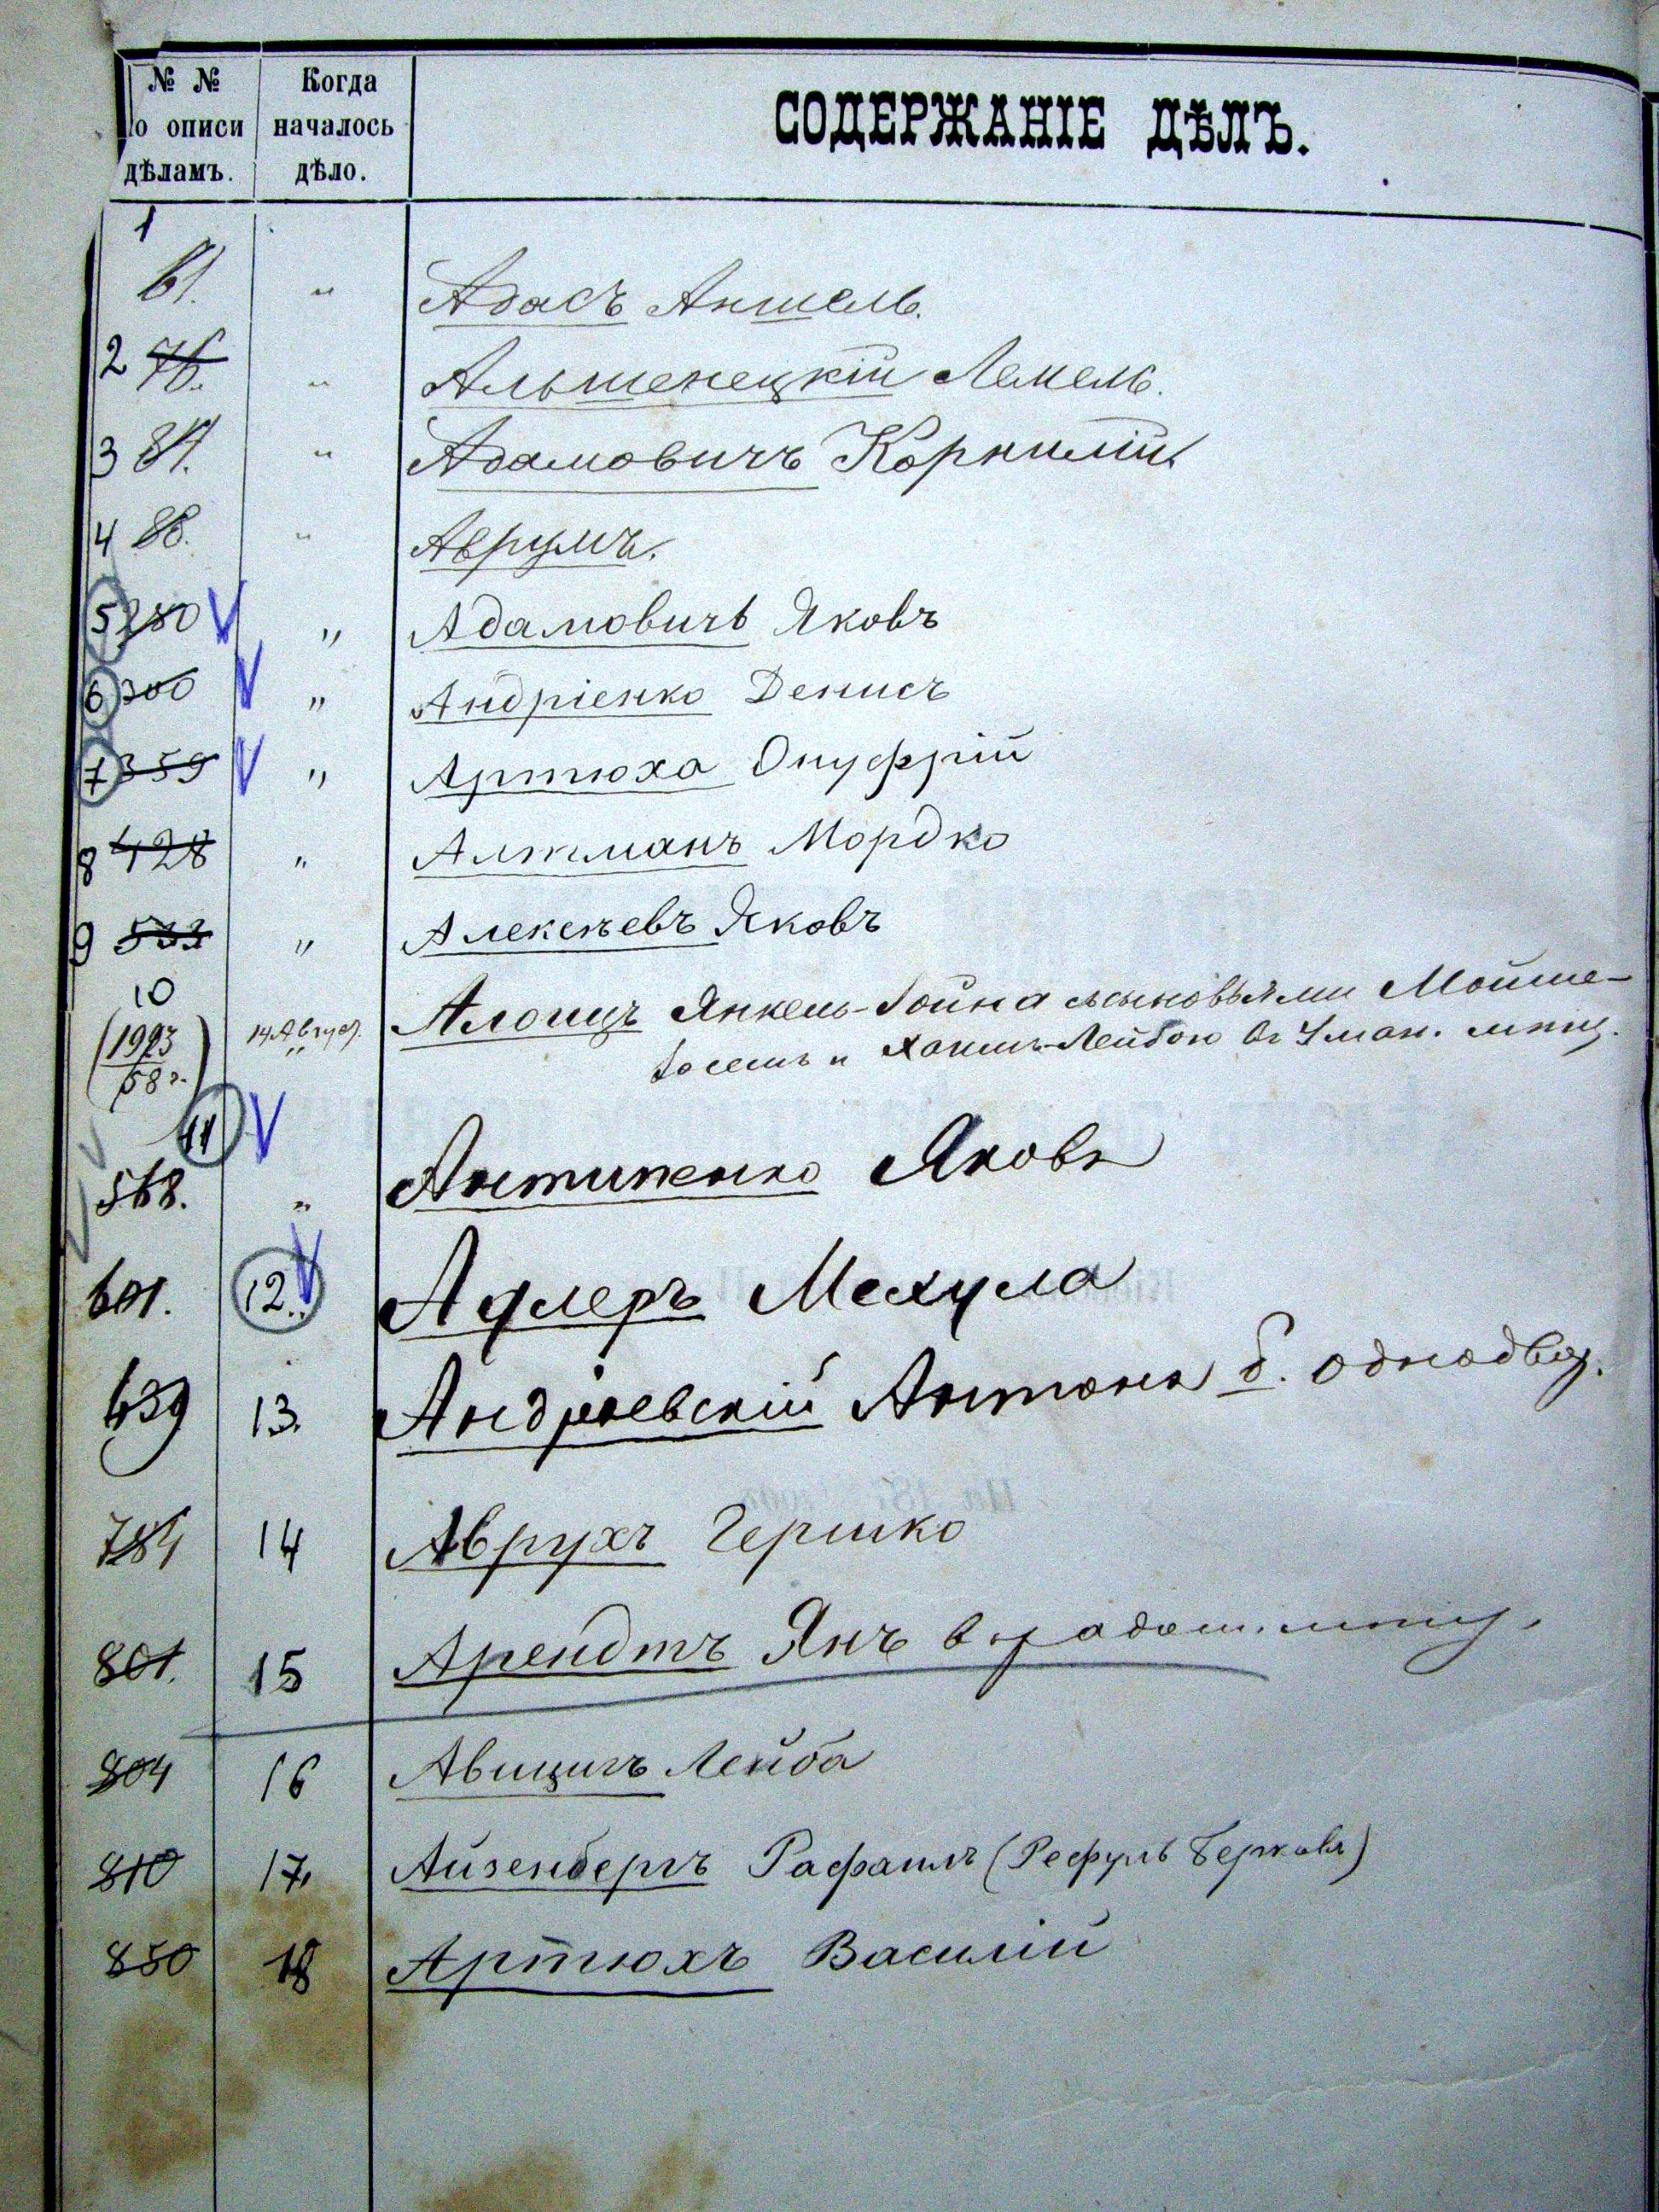 № №
по описи
дѣламъ.
Когда
началось
дѣло.
СОДЕРЖАНІЕ ДѢЛЪ.
1
61. " Адасъ Аншель.
2 76. " Альшенецкій Лемель.
3 84. " Адамовичъ Корнилій
4 88. " Аврумъ.
5 280 " Адамовичъ Яковъ
6 300 " Андріенко Денисъ
7 359 " Артюха Онуфрій
8 428 " Алтманъ Мордко
9 533 " Алексѣевъ Яковъ
10
(1993 14 Август. Янкель- съ сыновьями Мойше-
58 г.) и Лейбою въ Уман. мѣщ.
11
568. " Антипенко Яковъ
601. 12. Адлеръ Мехула
639 13. Андріевскій Антонъ б. однодвор.
784 14 Аврухъ Гершко
801. 15 Арендтъ Янъ в мѣщ.
804 16 Авицигъ Лейба
810 17. Айзенбергъ Рафаилъ (Рефулъ Берковъ)
850 18 Артюхъ Василій